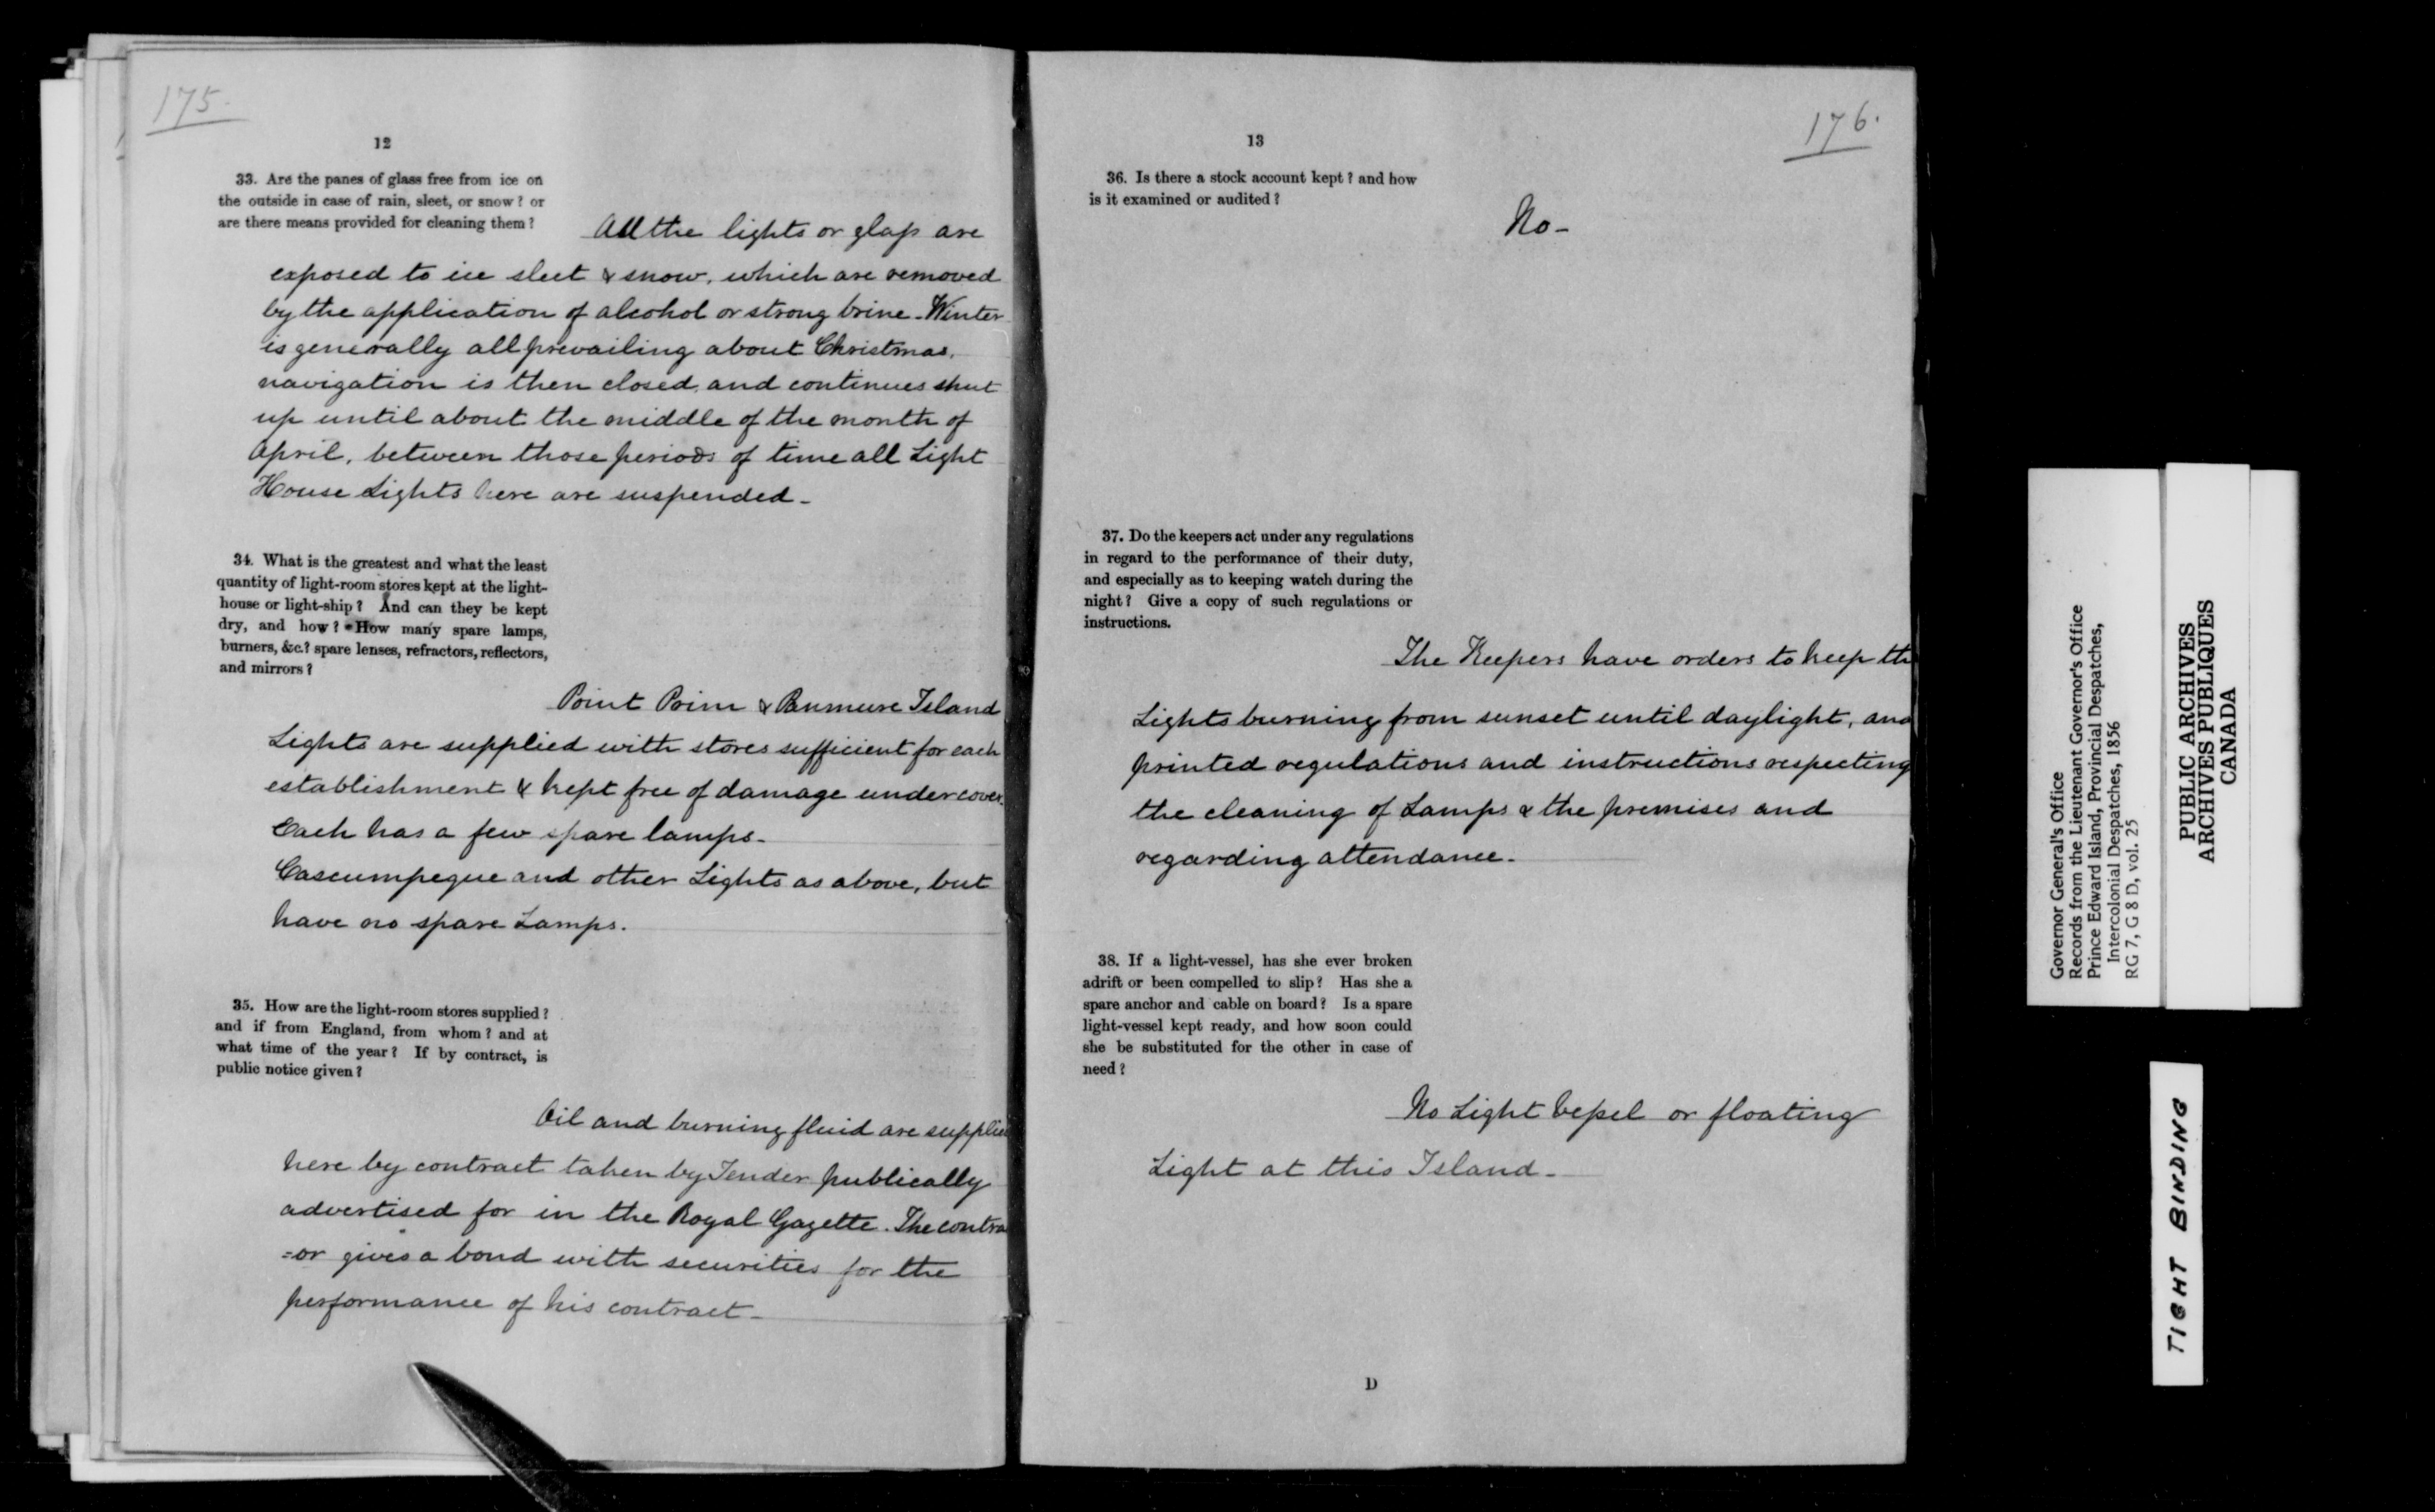 175.
12
33. Are the panes of glass free from ice on
the outside in case of rain, sleet, or snow? or
are there means provided for cleaning them?
All the lights or glass are
exposed to ice sleet & snow, which are removed
by the application of alcohol or strong brine. Winter
is generally all prevailing about Christmas,
navigation is then closed, and continues shut
up until about the middle of the month of
April, between those periods of time all Light
House Lights here are suspended -
34. What is the greatest and what the least
quantity of light-room stores kept at the light-
house or light-ship? And can they be kept
dry, and how? How many spare lamps,
burners, &c.? spare lenses, refractors, reflectors,
and mirrors?
Point Prim & Panmure Island
Lights are supplied with stores sufficient for each
establishment & kept free of damage under cover.
Each has a few spare lamps -
Cascumpeque and other Lights as above, but
have no spare Lamps.
35. How are the light-room stores supplied?
and if from England, from whom? and at
what time of the year? If by contract, is
public notice given?
Oil and burning fluid are supplie
here by contract taken by Tender publically
advertised for in the Royal Gazette. The contra
=or gives a bond with securities for the
performance of his contract -
176.
13
36. Is there a stock account kept? and how
is it examined or audited?
No -
37. Do the keepers act under any regulations
in regard to the performance of their duty,
and especially as to keeping watch during the
night? Give a copy of such regulations or
instructions.
The Keepers have orders to keep th
Lights burning from sunset until daylight, and
printed regulations and instructions respecting
the cleaning of Lamps & the premises and
regarding attendance -
38. If a light-vessel, has she ever broken
adrift or been compelled to slip? Has she a
spare anchor and cable on board? Is a spare
light-vessel kept ready, and how soon could
she be substituted for the other in case of
need?
No Light Vessel or floating
Light at this Island -
D
Governor General's Office
Records from the Lieutenant Governor's Office
Prince Edward Island, Provincial Despatches,
Intercolonial Despatches, 1856
RG 7, G 8 D, vol. 25
PUBLIC ARCHIVES
ARCHIVES PUBLIQUES
CANADA
TIGHT BINDING